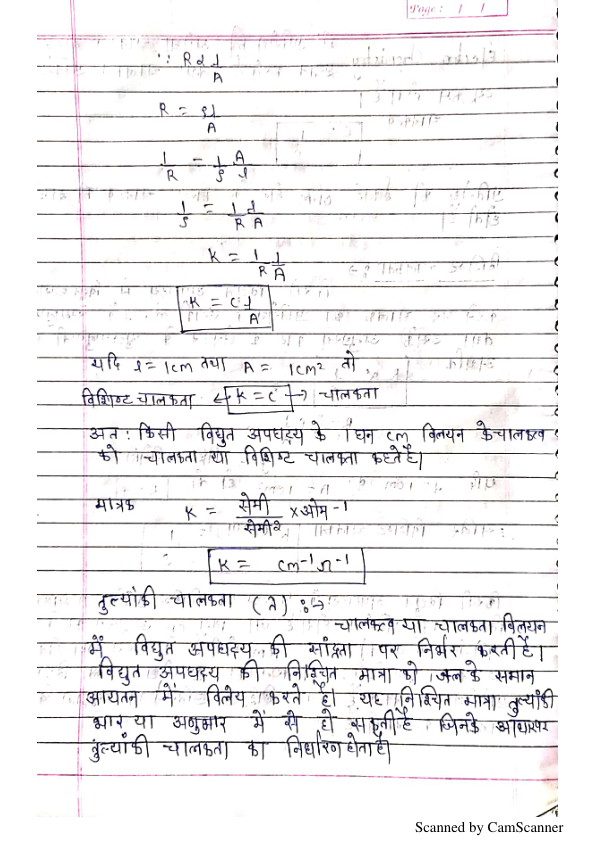 Page: 1 1
∵ R α l/A
R = ρl/A
1/R = 1/ρ A/l
1/ρ = 1/R l/A
K = 1/R l/A
K = C l/A
यदि l = 1cm तथा A = 1cm² तो
विशिष्ट चालकता ← K = C → चालकता
अत: किसी विद्युत अपघट्य के 1 घन cm विलयन के चालकत्व
को चालकता या विशिष्ट चालकता कहते है।
मात्रक K = सेमी/सेमी² × ओम-1
K = cm-1 Ω-1
तुल्यांकी चालकता (λ) :→
चालकत्व या चालकता विलयन
में विद्युत अपघट्य की सांद्रता पर निर्भर करती है।
विद्युत अपघट्य की निश्चित मात्रा को जल के समान
आयतन में विलेय करते है। यह निश्चित मात्रा तुल्यांकी
भार या अणुभार में से हो सकती है जिनके आधार पर
तुल्यांकी चालकता का निर्धारण होता है।
Scanned by CamScanner